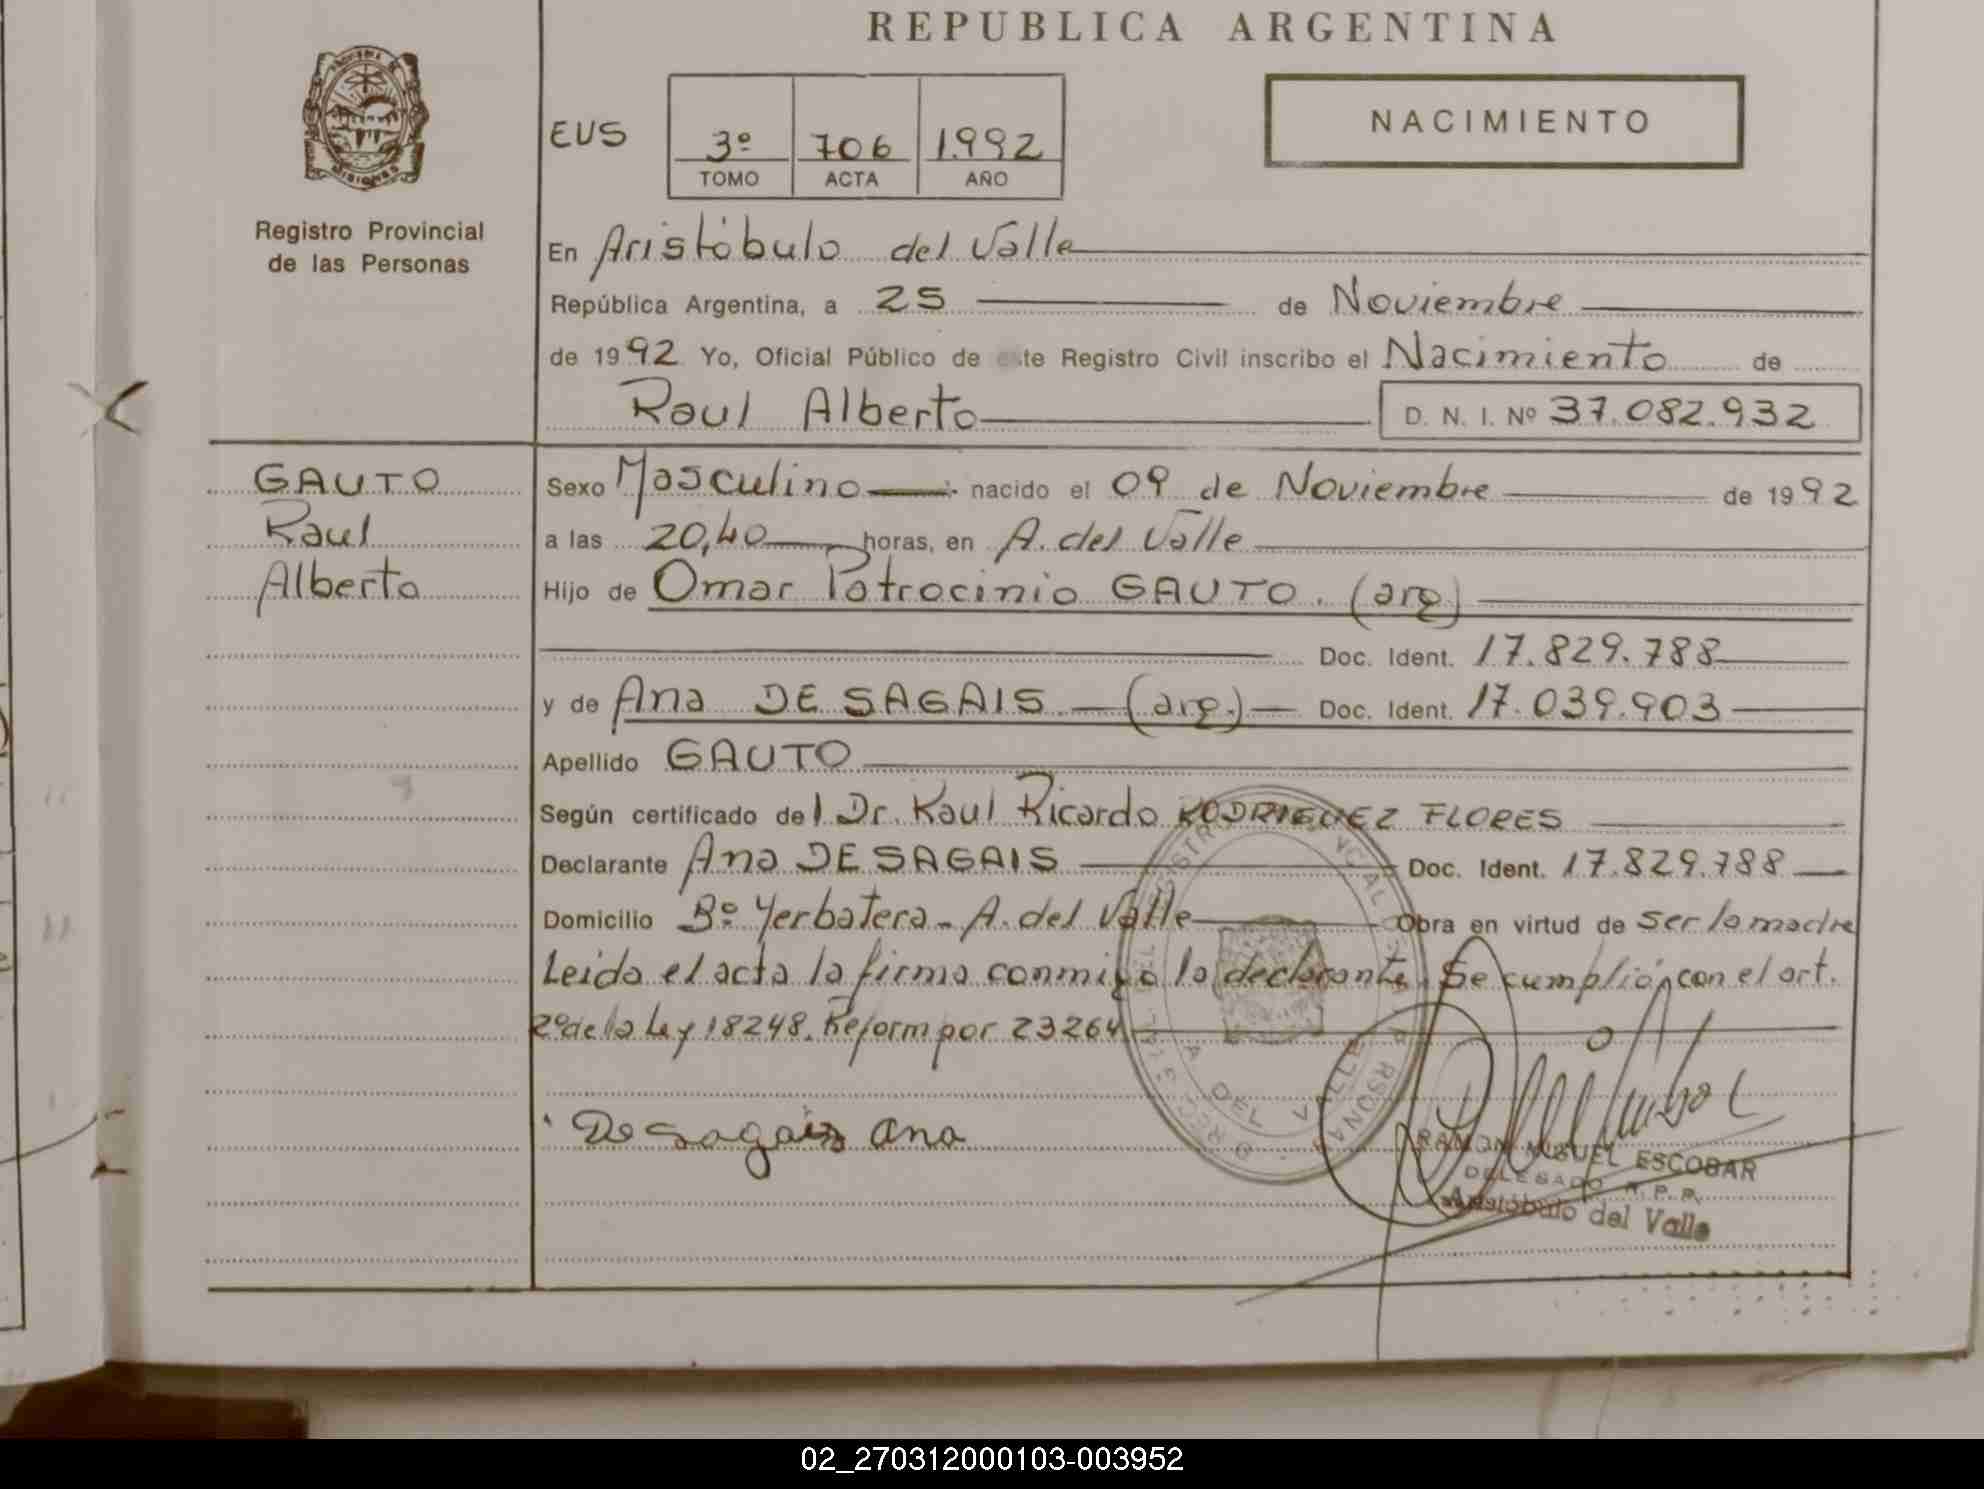 REPUBLICA ARGENTINA
PROVINCIA DE
MISIONES
Registro Provincial
de las Personas
EUS
3º 706 1.992
TOMO ACTA AÑO
NACIMIENTO
En Aristóbulo del Valle
República Argentina, a 25 de Noviembre
de 1992 Yo, Oficial Público de este Registro Civil inscribo el Nacimiento de
Raul Alberto D. N. I. Nº 37.082.932
GAUTO
Raul
Alberto
Sexo Masculino nacido el 09 de Noviembre de 1992
a las 20,40 horas, en A. del Valle
Hijo de Omar Patrocinio GAUTO. (arg)
Doc. Ident. 17.829.788
y de Ana DE SAGAIS (arg.) Doc. Ident. 17.039.903
Apellido GAUTO
Según certificado del Dr. Raul Ricardo RODRIGUEZ FLORES
Declarante Ana DE SAGAIS Doc. Ident. 17.829.788
Domicilio Bº Yerbatera - A. del Valle Obra en virtud de ser la madre
Leida el acta la firma conmigo la declarante. Se cumplió con el art.
2º de la Ley 18248. Reform por 23264
De sagais ana
RAMON MIGUEL ESCOBAR
DELEGADO R. P. P.
Aristóbulo del Valle
02_270312000103-003952